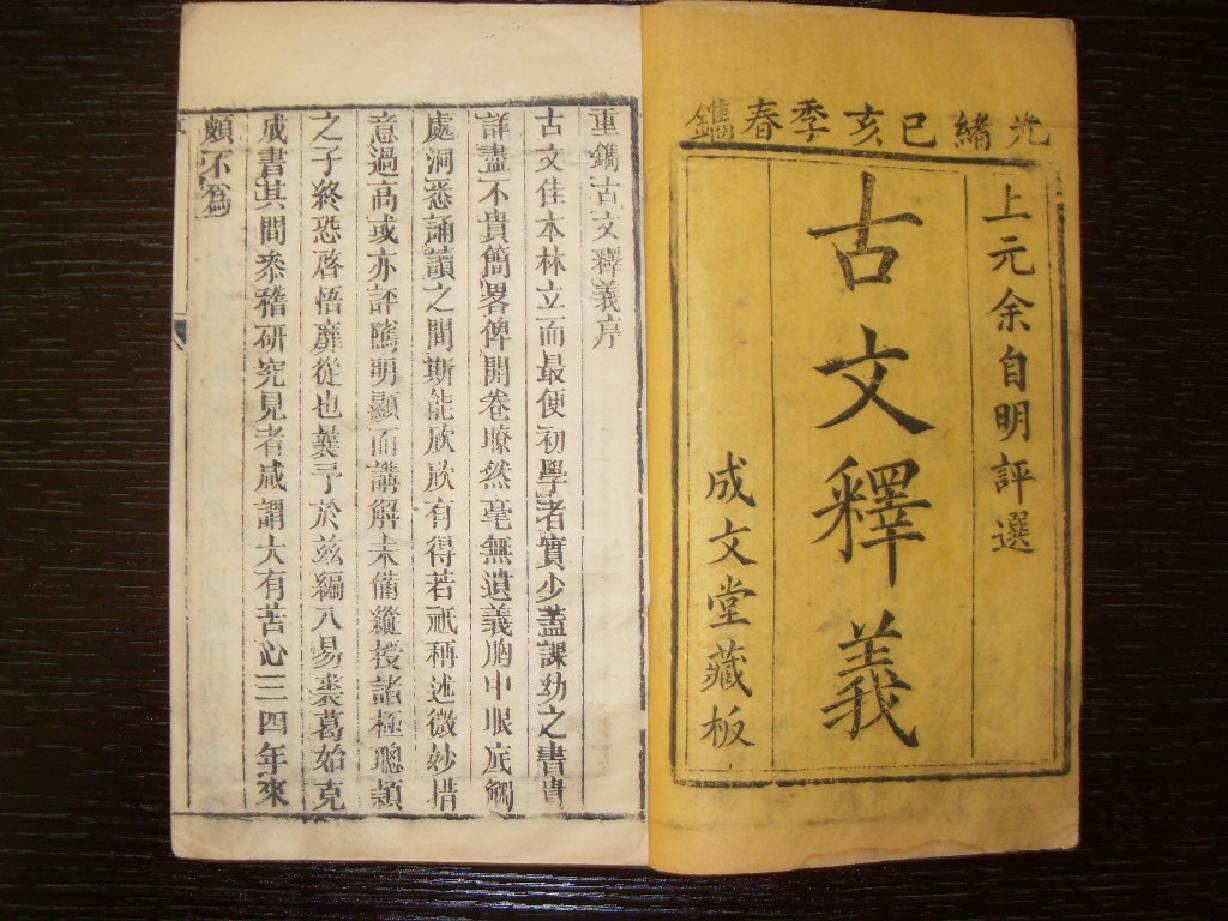 光緒己亥季春鐫
上元余自明評選
古文釋義
成文堂藏板
重鐫古文釋義序
古文佳本林立而最便初學者實少蓋課幼之書貴
詳盡不貴簡畧俾開卷瞭然毫無遺義胸中眼底觸
處洞悉誦讀之間斯能欣欣有得若祇稱述微妙措
意過高或亦評隲明顯而講解未備縱授諸極聰穎
之子終恐啓悟靡從也曩予於兹編八易裘葛始克
成書其間叅稽研究見者咸謂大有苦心三四年來
頗不為